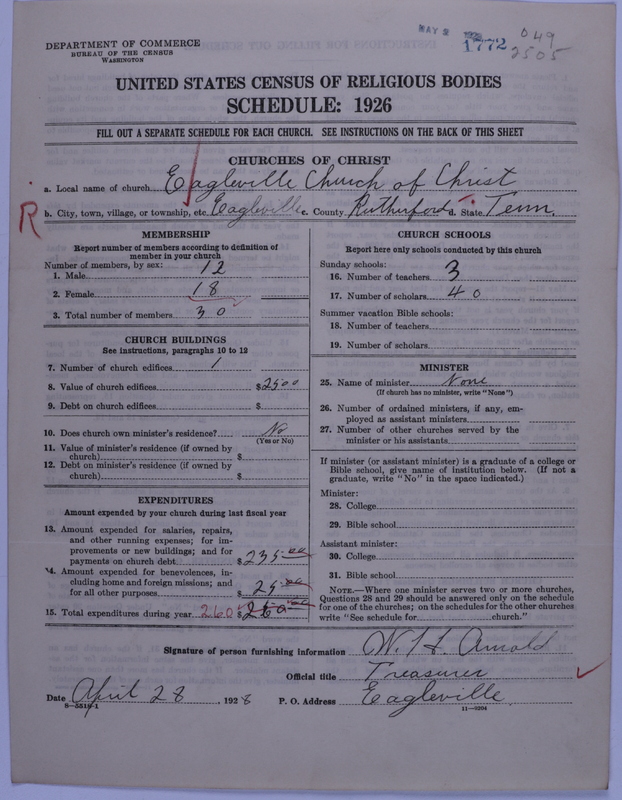 MAY 2
1772
049
2505
DEPARTMENT OF COMMERCE
BUREAU OF THE CENSUS
WASHINGTON
UNITED STATES CENSUS OF RELIGIOUS BODIES
SCHEDULE: 1926
FILL OUT A SEPARATE SCHEDULE FOR EACH CHURCH. SEE INSTRUCTIONS ON THE BACK OF THIS SHEET
CHURCHES OF CHRIST
a. Local name of church Eagleville Church of Christ
R
b. City, town, village, or township, etc Eagleville c. County Rutherford d. State Tenn.
MEMBERSHIP
Report number of members according to definition of
member in your church
Number of members, by sex:
1. Male 12
2. Female 18
3. Total number of members 30
CHURCH BUILDINGS
See instructions, paragraphs 10 to 12
7. Number of church edifices 1
8. Value of church edifices $2500
9. Debt on church edifices $
10. Does church own minister's residence? No
(Yes or No)
11. Value of minister's residence (if owned by
church) $
12. Debt on minister's residence (if owned by
church) $
EXPENDITURES
Amount expended by your church during last fiscal year
13. Amount expended for salaries, repairs,
and other running expenses; for im-
provements or new buildings; and for
payments on church debt $235.00
14. Amount expended for benevolences, in-
cluding home and foreign missions; and
for all other purposes $25.00
15. Total expenditures during year 260 $260.00
CHURCH SCHOOLS
Report here only schools conducted by this church
Sunday schools:
16. Number of teachers 3
17. Number of scholars 40
Summer vacation Bible schools:
18. Number of teachers
19. Number of scholars
MINISTER
25. Name of minister None
(If church has no minister, write "None")
26. Number of ordained ministers, if any, em-
ployed as assistant ministers
27. Number of other churches served by the
minister or his assistants
If minister (or assistant minister) is a graduate of a college or
Bible school, give name of institution below. (If not a
graduate, write "No" in the space indicated.)
Minister:
28. College
29. Bible school
Assistant minister:
30. College
31. Bible school
NOTE.—Where one minister serves two or more churches,
Questions 28 and 29 should be answered only on the schedule
for one of the churches; on the schedules for the other churches
write "See schedule for church."
Signature of person furnishing information Arnold
Official title Treasurer
Date April 28, 1928 P. O. Address Eagleville
8-5518-1 11-9204